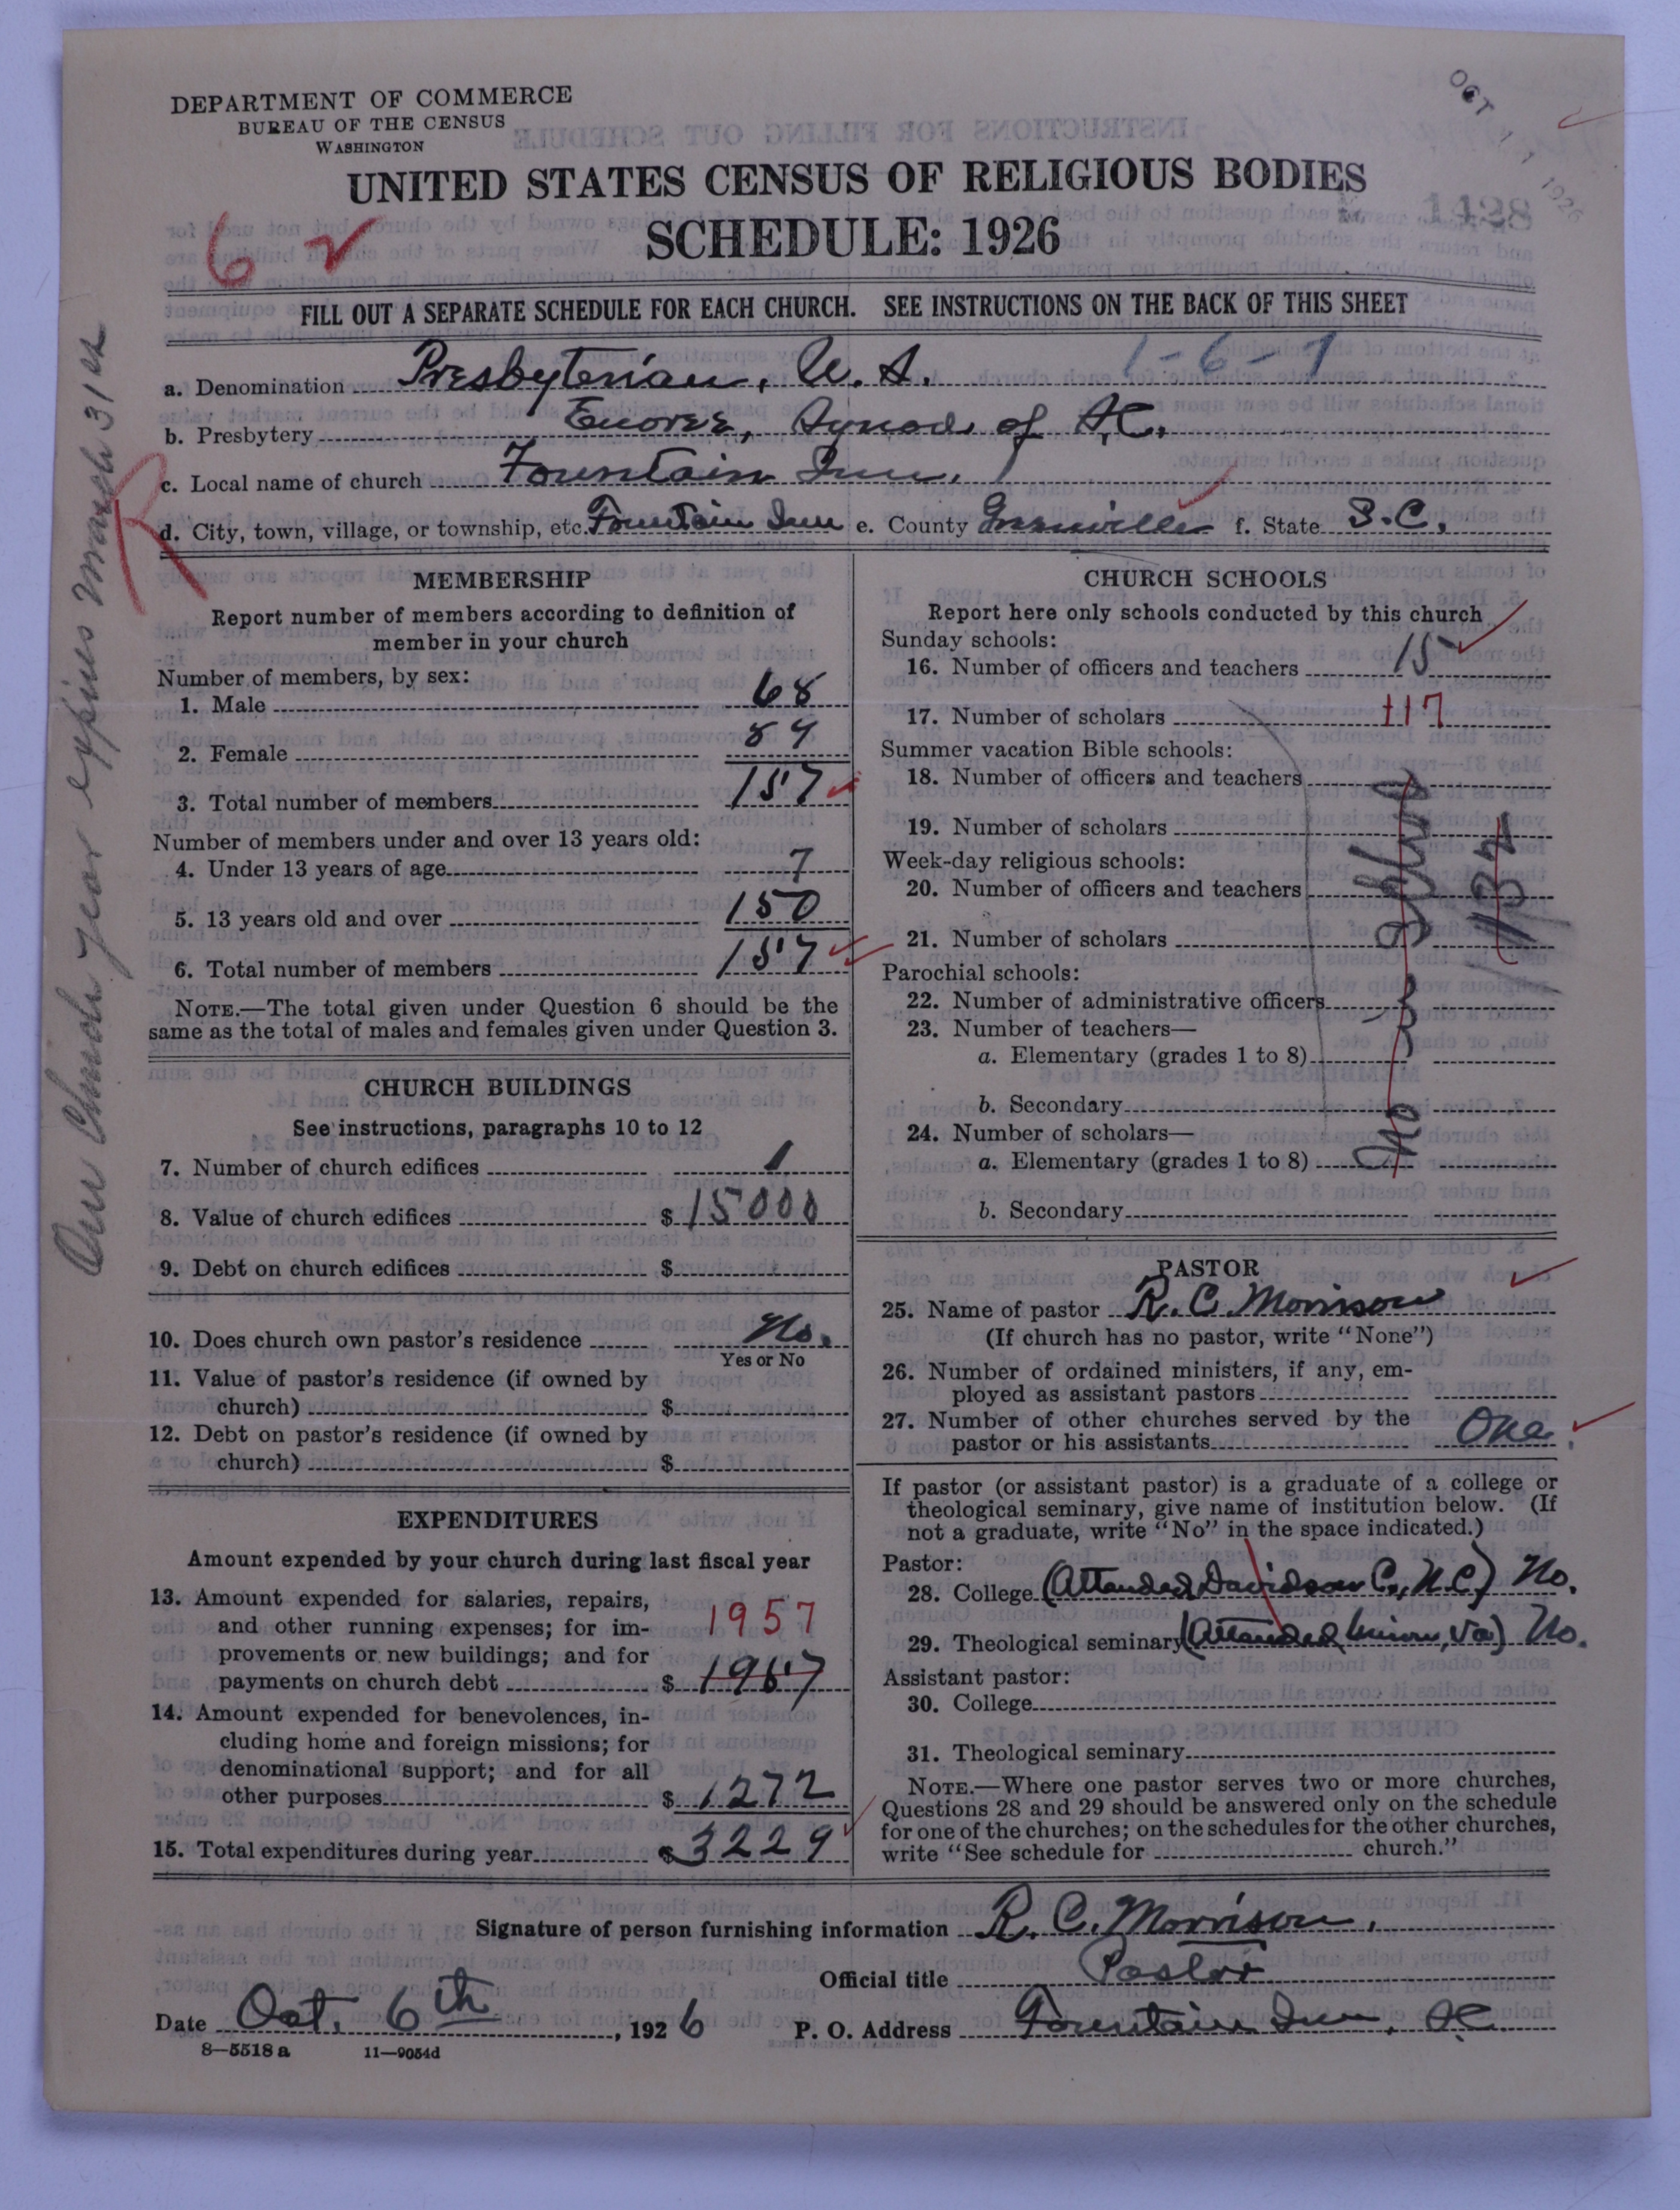 DEPARTMENT OF COMMERCE
BUREAU OF THE CENSUS
WASHINGTON
OCT 11 1926
UNITED STATES CENSUS OF RELIGIOUS BODIES
1428
SCHEDULE: 1926
6
FILL OUT A SEPARATE SCHEDULE FOR EACH CHURCH. SEE INSTRUCTIONS ON THE BACK OF THIS SHEET
1-6-7
a. Denomination Presbyterian, U. S.
b. Presbytery Enoree, Synod of S.C.
c. Local name of church Fountain Inn.
d. City, town, village, or township, etc. Fountain Inn e. County Greenville f. State S.C.
R
Our Church year expires March 31st
MEMBERSHIP
Report number of members according to definition of
member in your church
Number of members, by sex:
1. Male 68
2. Female 89
3. Total number of members 157
Number of members under and over 13 years old:
4. Under 13 years of age 7
5. 13 years old and over 150
6. Total number of members 157
NOTE.—The total given under Question 6 should be the
same as the total of males and females given under Question 3.
CHURCH BUILDINGS
See instructions, paragraphs 10 to 12
7. Number of church edifices 1
8. Value of church edifices $ 15000
9. Debt on church edifices $
10. Does church own pastor's residence No.
Yes or No
11. Value of pastor's residence (if owned by
church) $
12. Debt on pastor's residence (if owned by
church) $
EXPENDITURES
Amount expended by your church during last fiscal year
13. Amount expended for salaries, repairs,
and other running expenses; for im-
provements or new buildings; and for
payments on church debt $ 1957
1957
14. Amount expended for benevolences, in-
cluding home and foreign missions; for
denominational support; and for all
other purposes $ 1272
15. Total expenditures during year $ 3229
CHURCH SCHOOLS
Report here only schools conducted by this church
Sunday schools:
16. Number of officers and teachers 15
17. Number of scholars 117
Summer vacation Bible schools:
18. Number of officers and teachers
19. Number of scholars
Week-day religious schools:
20. Number of officers and teachers
21. Number of scholars
Parochial schools:
22. Number of administrative officers
23. Number of teachers—
a. Elementary (grades 1 to 8)
b. Secondary
24. Number of scholars—
a. Elementary (grades 1 to 8)
b. Secondary
132
PASTOR
25. Name of pastor R. C. Morrison
(If church has no pastor, write "None")
26. Number of ordained ministers, if any, em-
ployed as assistant pastors
27. Number of other churches served by the
pastor or his assistants One.
If pastor (or assistant pastor) is a graduate of a college or
theological seminary, give name of institution below. (If
not a graduate, write "No" in the space indicated.)
Pastor:
28. College (Attended Davidson C., N.C.) No.
29. Theological seminary (Attended Union, Va) No.
Assistant pastor:
30. College
31. Theological seminary
NOTE.—Where one pastor serves two or more churches,
Questions 28 and 29 should be answered only on the schedule
for one of the churches; on the schedules for the other churches,
write "See schedule for church."
Signature of person furnishing information R. C. Morrison.
Official title Pastor
Date Oct. 6th, 1926 P. O. Address Fountain Inn, SC
8—5518 a 11—9054d